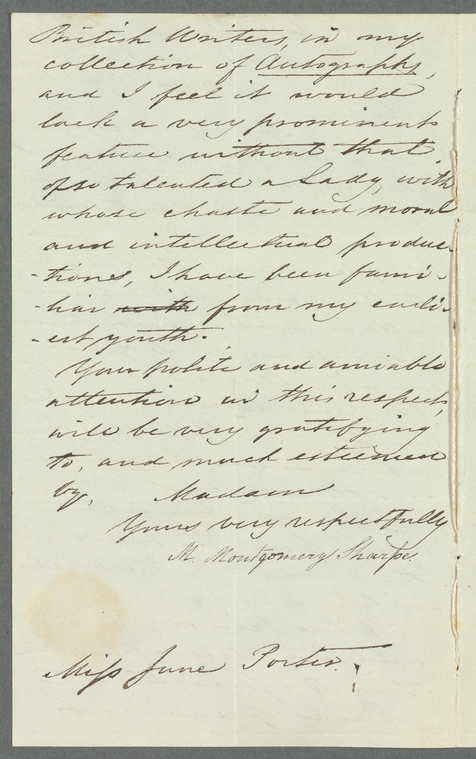 British Writers, in my
collection of Autographs,
and I feel it would
lack a very prominent
feature without that
of so talented a Lady, with
whose chaste and moral
and intellectual produc-
-tions, I have been fami-
-liar with from my earli-
-est youth.
Your polite and amiable
attention in this respect,
will be very gratifying
to, and much esteemed
by, Madam
Yours very respectfully
M. Montgomery Sharpe.
Miss Jane Porter.